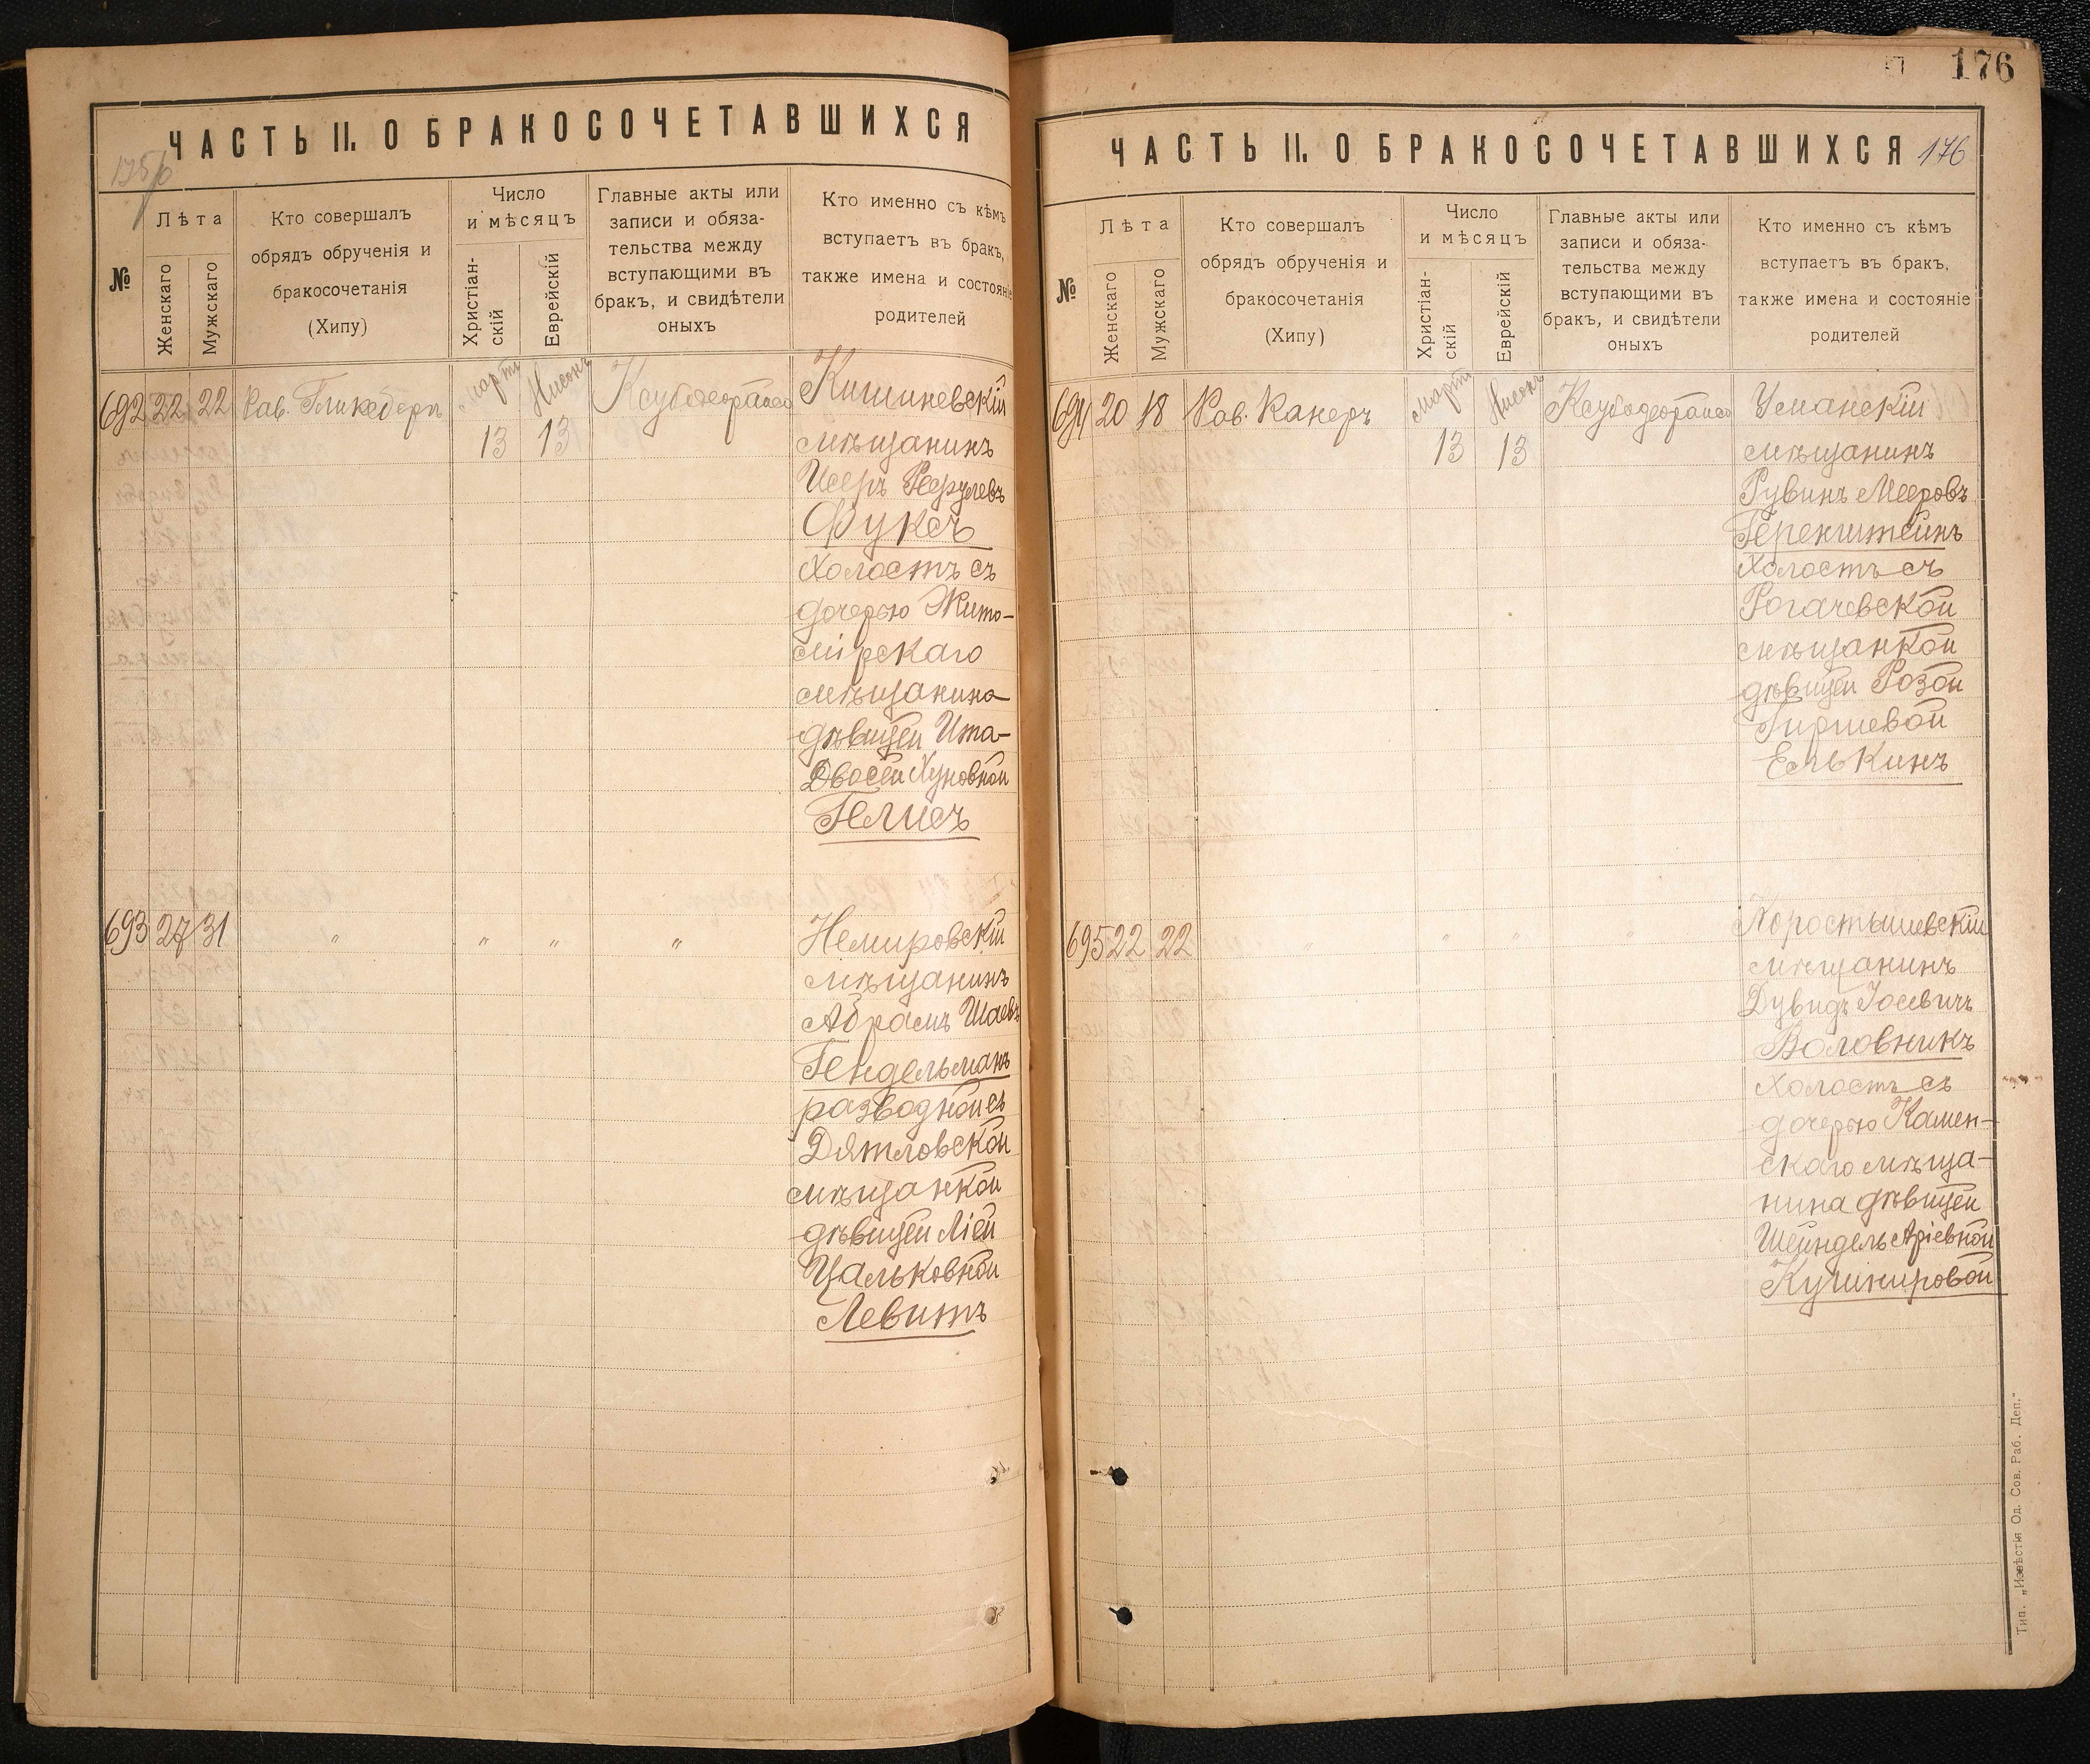 ЧАСТЬ II. О БРАКОСОЧЕТАВШИХСЯ
№
Лѣта
Женскаго
Мужскаго
Кто совершалъ
обрядъ обрученія и
бракосочетанія
(Хипу)
Число
и мѣсяцъ
Христіан-
скій
Еврейскій
Главные акты или
записи и обяза-
тельства между
вступающими въ
бракъ, и свидѣтели
оныхъ
Кто именно съ кѣмъ
вступаетъ въ бракъ,
также имена и состояніе
родителей
692 22 22 Рав. Гликсбергъ
Мартъ 13
Нисонъ 13
Кишиневскій
мѣщанинъ
Исеръ
Фуксъ
Холостъ съ
дочерью Жито-
мірскаго
мѣщанина
дѣвицей Ита-
Двосей
Гелисъ
693 27 31 " " " "
Немировскій
мѣщанинъ
Абрамъ Шаевъ
Гендельманъ
разводной съ
Дятловской
мѣщанкой
дѣвицей Ліей
Цальковной
Левитъ
176
ЧАСТЬ II. О БРАКОСОЧЕТАВШИХСЯ 176
№
Лѣта
Женскаго
Мужскаго
Кто совершалъ
обрядъ обрученія и
бракосочетанія
(Хипу)
Число
и мѣсяцъ
Христіан-
скій
Еврейскій
Главные акты или
записи и обяза-
тельства между
вступающими въ
бракъ, и свидѣтели
оныхъ
Кто именно съ кѣмъ
вступаетъ въ бракъ,
также имена и состояніе
родителей
694 20 18 Рав. Канеръ
Мартъ 13
Нисонъ 13
Уманскій
мѣщанинъ
Рувинъ Мееровъ
Геренштейнъ
Холостъ съ
Рогачевской
мѣщанкой
дѣвицей Розой
Гиршевой
Елькинъ
695 22 22 " " " "
Коростышевскій
мѣщанинъ
Дувидъ Іосевичъ
Воловникъ
Холостъ съ
дочерью Камен-
скаго мѣща-
нина дѣвицей
Шейндель Аріевной
Кушнировой
Тип. „Извѣстія Од. Сов. Раб. Деп."